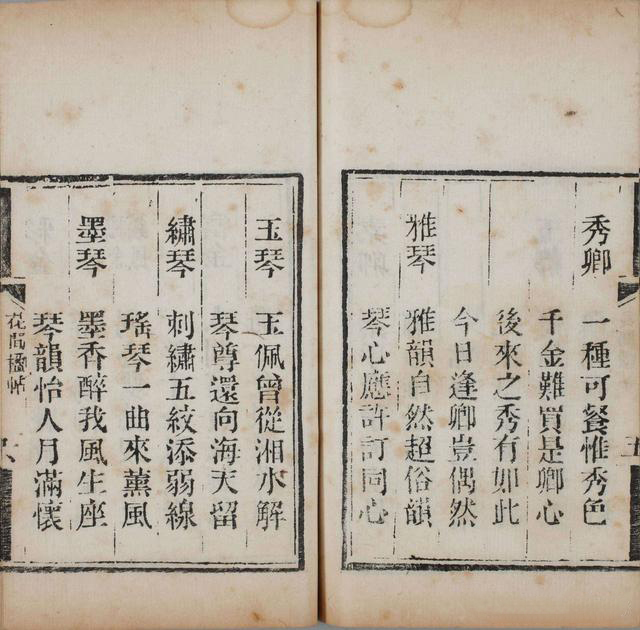 秀卿 一種可餐惟秀色
千金難買是卿心
後來之秀有如此
今日逢卿豈偶然
雅琴 雅韻自然超俗韻
琴心應許訂同心
五
玉琴 玉佩曾從湘水解
琴尊還向海天留
繡琴 刺繡五紋添弱線
瑤琴一曲來薰風
墨琴 墨香醉我風生座
琴韻怡人月滿懷
花間楹帖